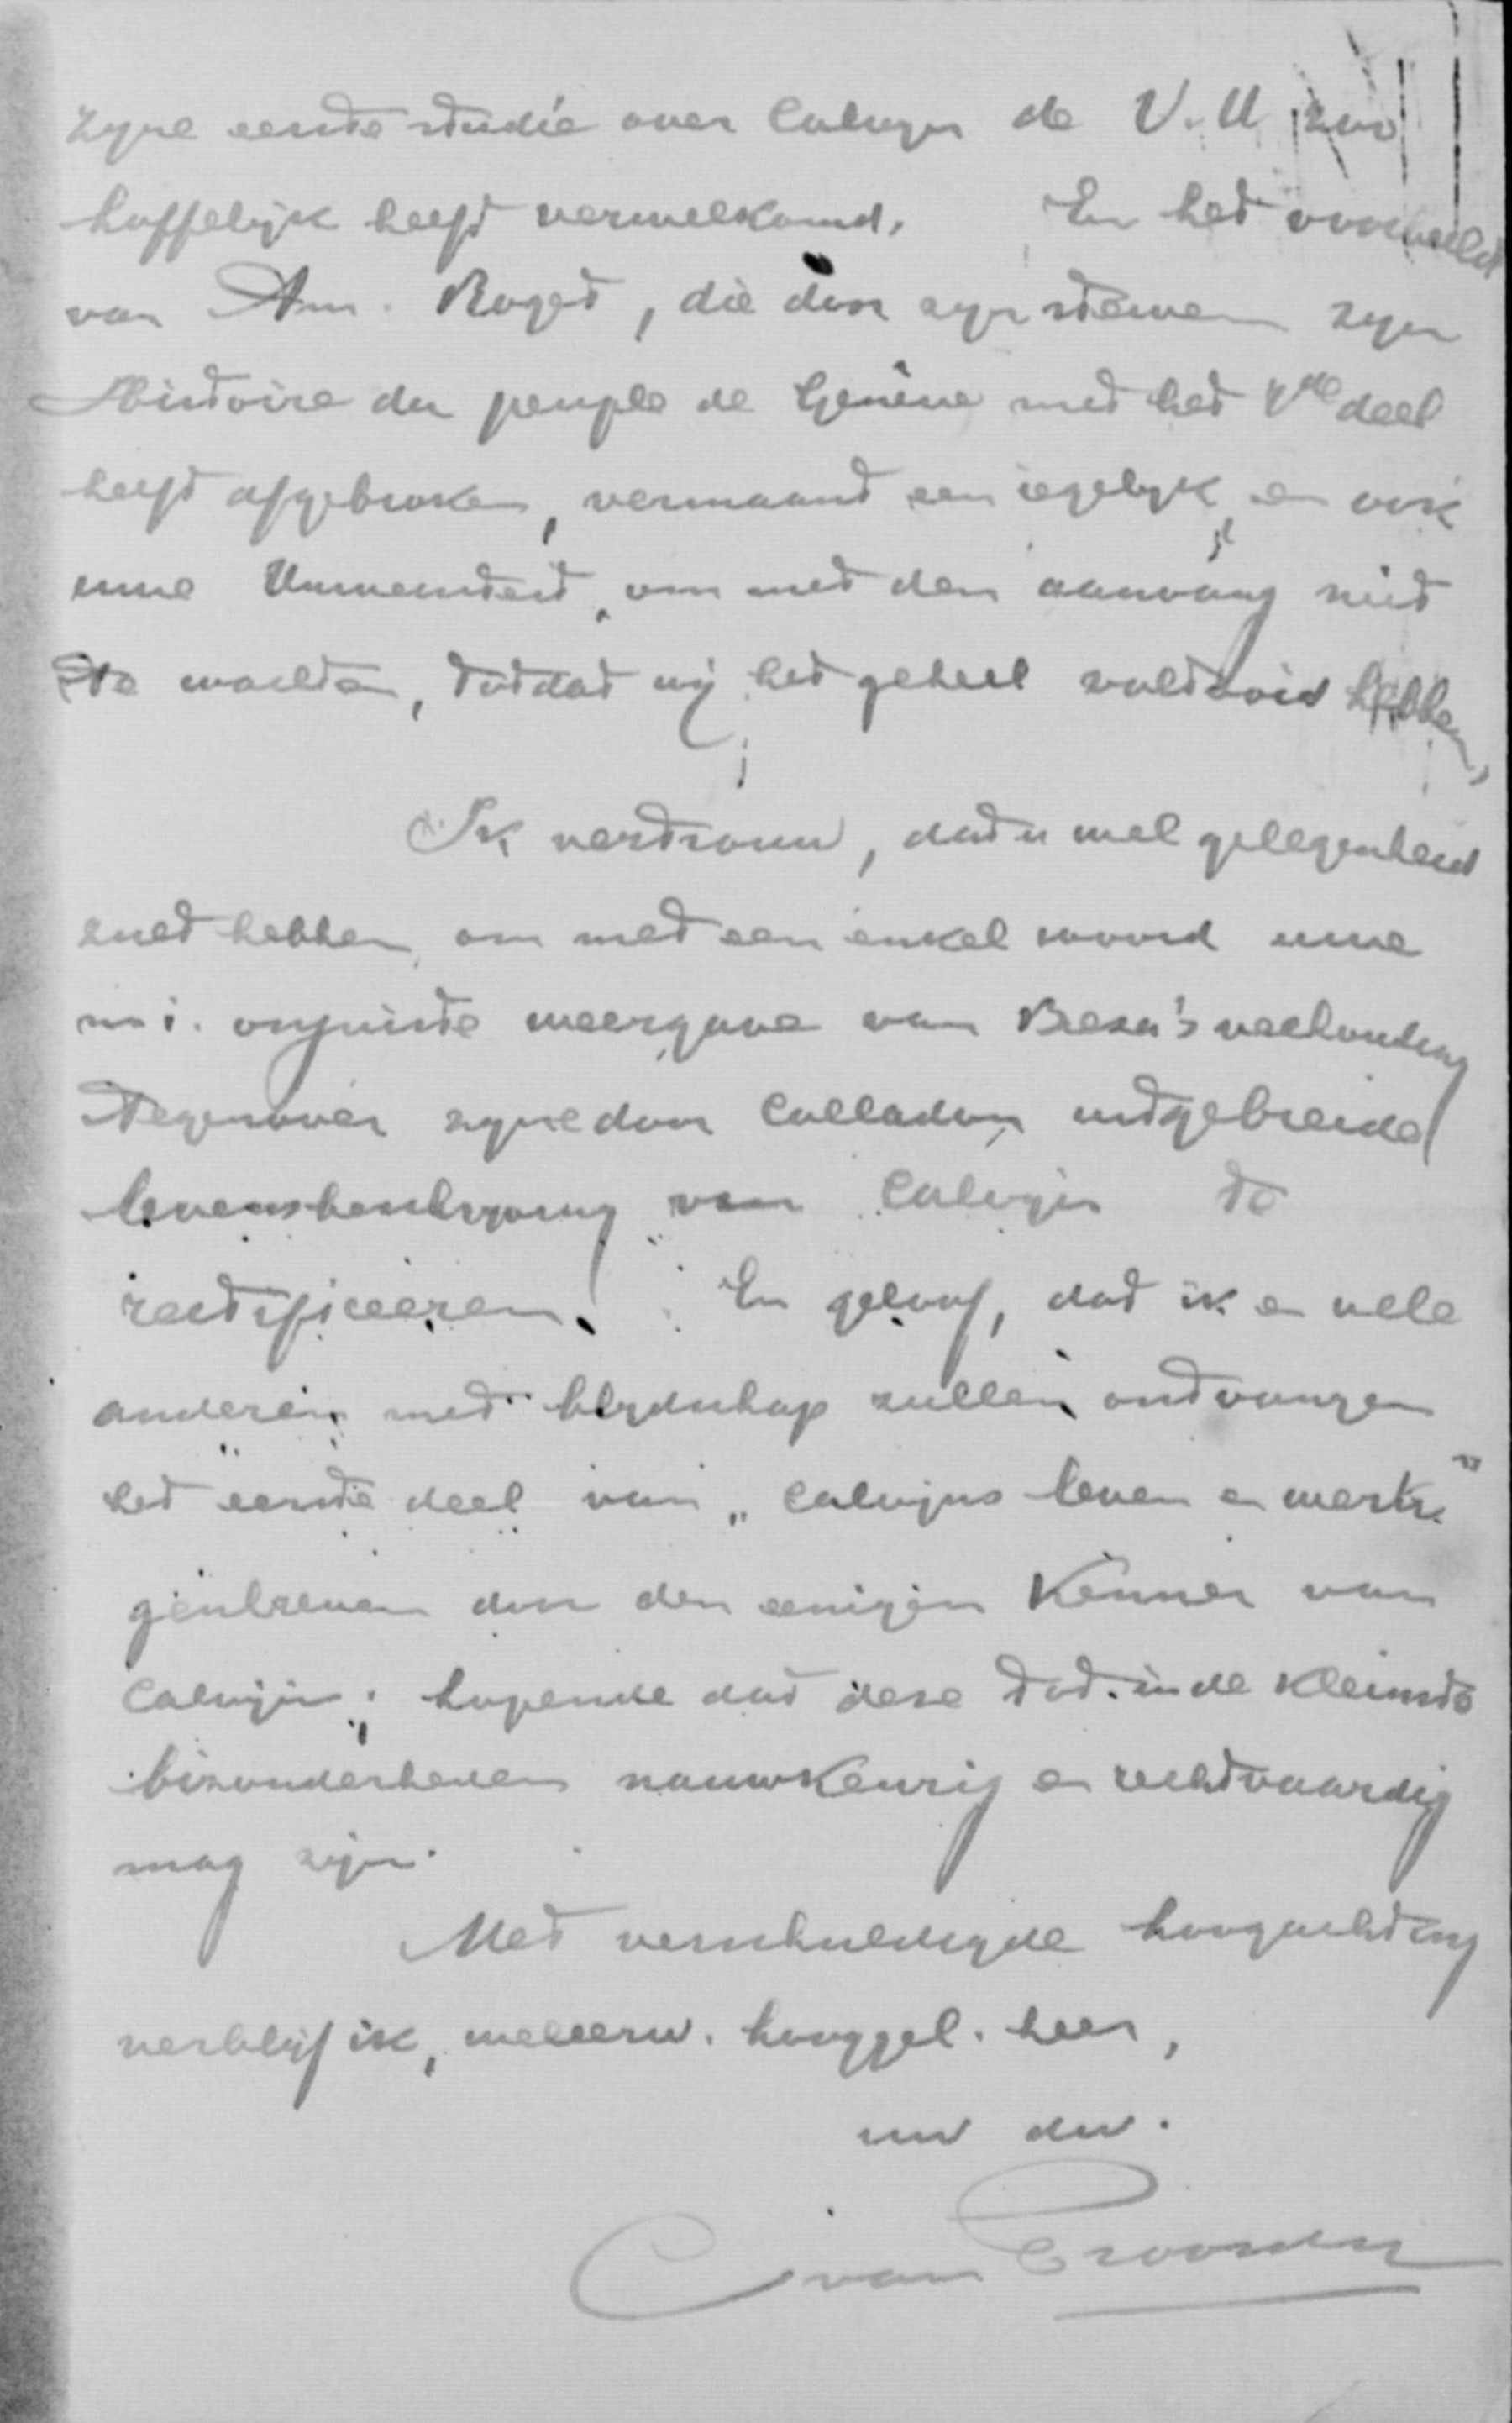 zyne eerste studie over Calvyn de V.U zoo
hoffelyk heeft verwelkomd. En het voorbeeld
van Am. Roget, die door zyn sterven zyn
Histoire du peuple de Genève met het 7de deel
heeft afgebroken, vermaant een iegelyk, en ook
uwe Uwe om met den aanvang niet
te wachten, totdat wij het geheel voltooid hebben,
Ik vertrouw, dat u wel gelegenheid
zult hebben, om met een enkel woord uwe
m.i. onjuiste weergave van Beza's verhouding
tegenover zyne door Colladon uitgebreide
levensbeschryving van Calvyn te
rectificeeren. En geloof, dat ik en vele
anderen met blydschap zullen ontvangen
het eerste deel van „Calvijns leven en werk"
geschreven door den eenigen Kenner van
Calvijn; hopende dat deze tot in de kleinste
bizonderheden nauwkeurig en rechtvaardig
mag zijn.
Met verschuldigde hoogachting
verblijf ik, weleerw. hooggel. heer,
uw dw.
C van Proosdij